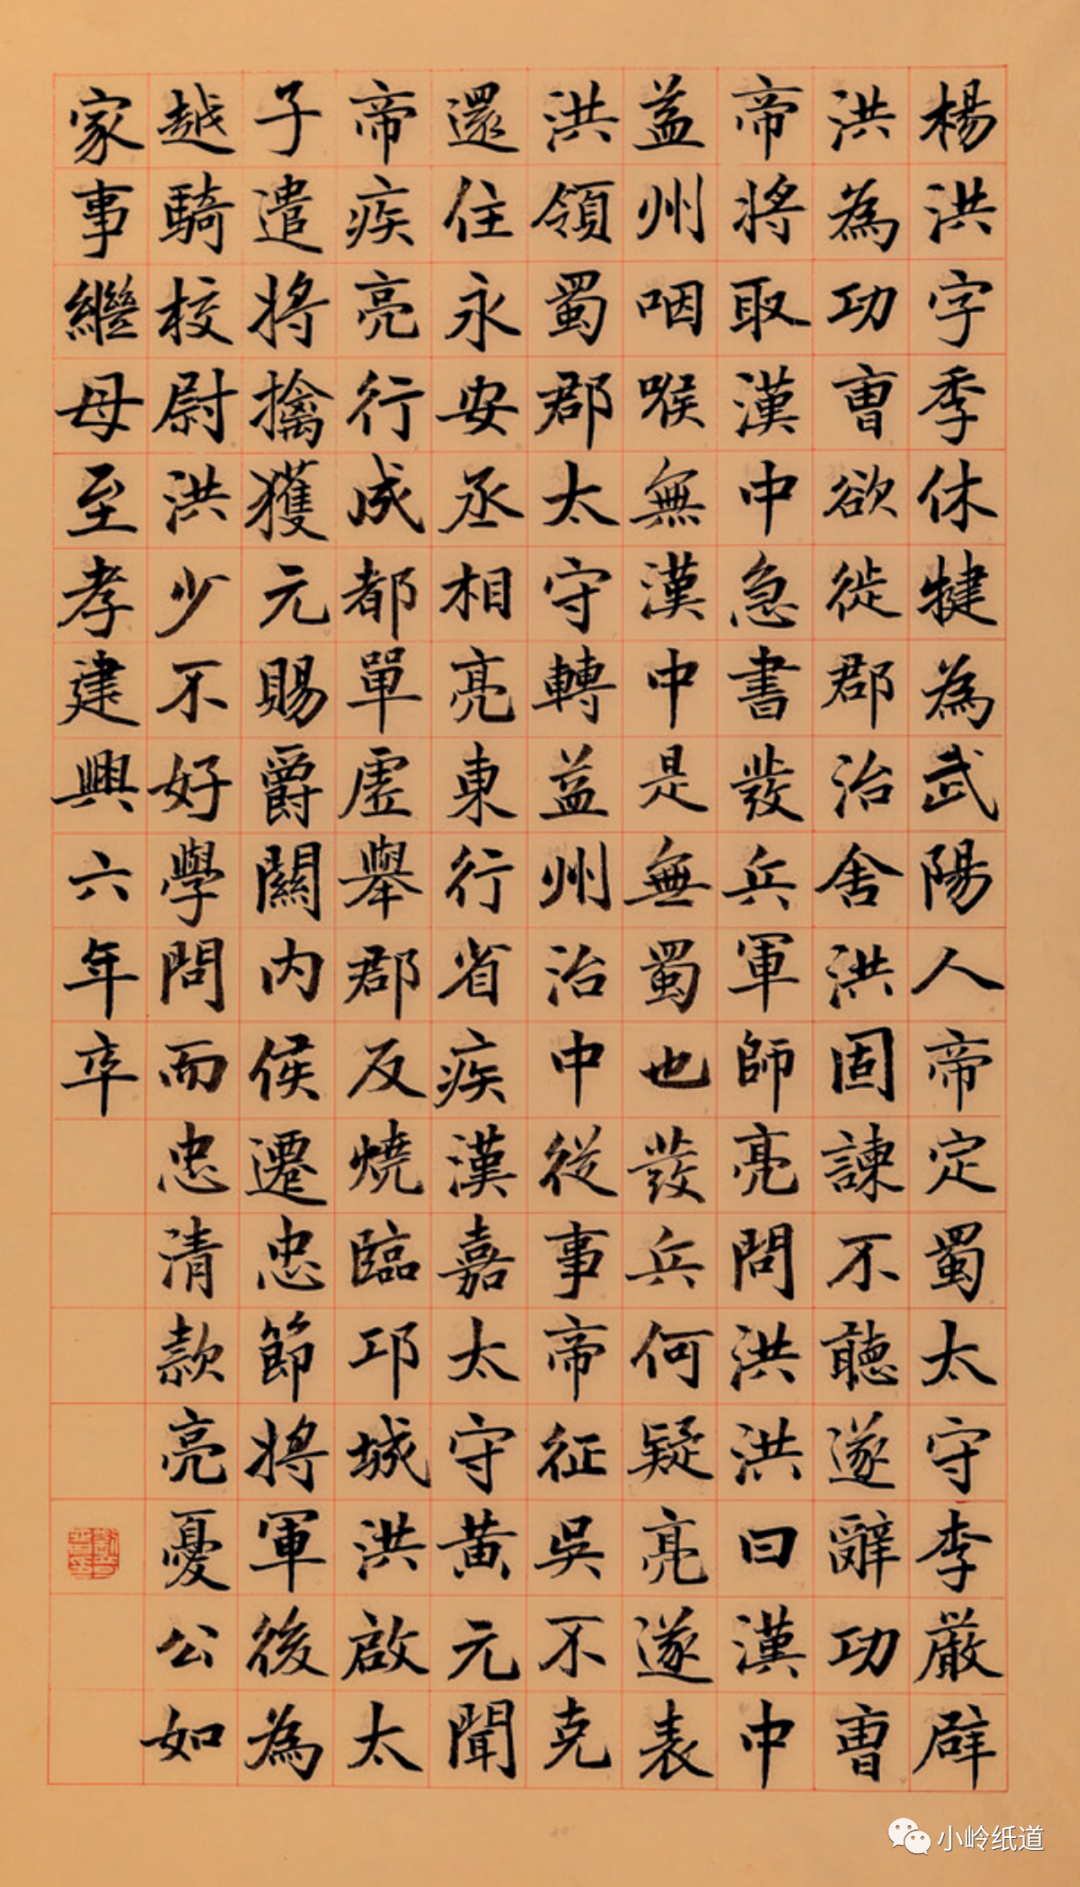 楊洪字季休犍為武陽人帝定蜀太守李嚴辟
洪為功曹欲徙郡治舍洪固諫不聽遂辭功曹
帝將取漢中急書發兵軍師亮問洪洪曰漢中
益州咽喉無漢中是無蜀也發兵何疑亮遂表
洪領蜀郡太守轉益州治中從事帝征吳不克
還住永安丞相亮東行省疾漢嘉太守黃元聞
帝疾亮行成都單虛舉郡反燒臨邛城洪啟太
子遣將擒獲元賜爵關內侯遷忠節將軍後為
越騎校尉洪少不好學問而忠清款亮憂公如
家事繼母至孝建興六年卒
小岭纸道